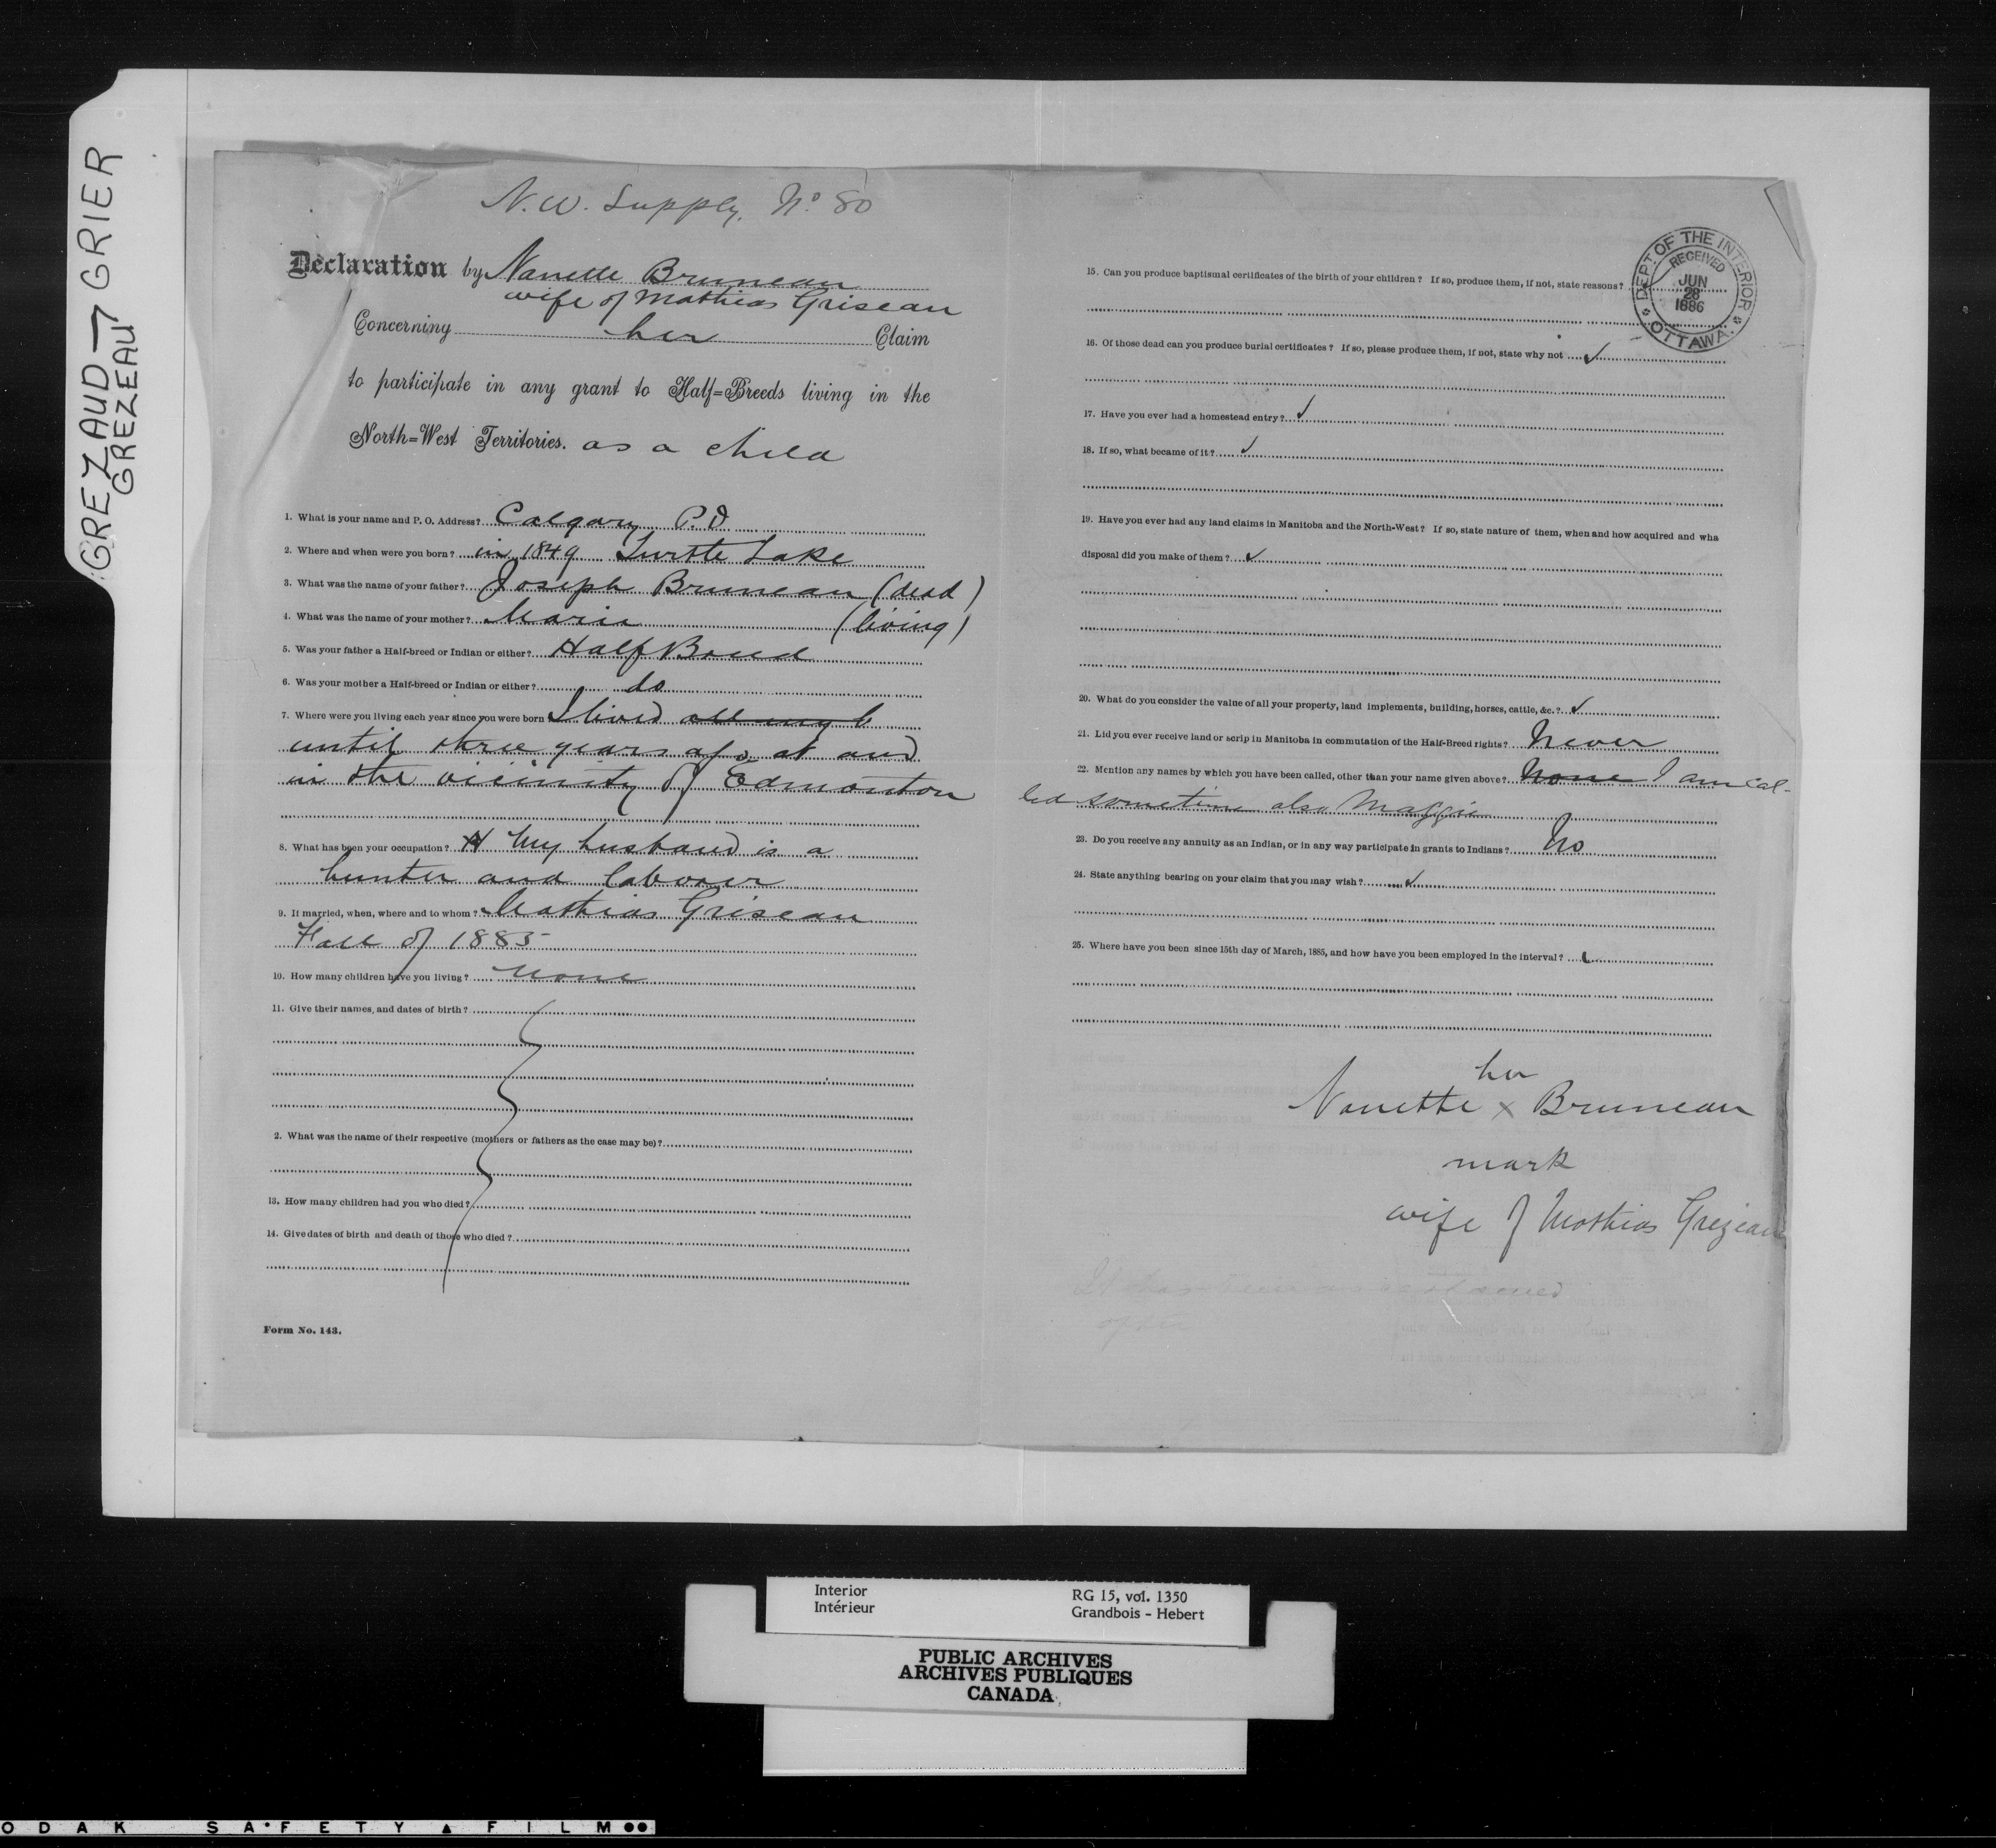 GREZAUD → GRIER
GREZEAU
N.W. Supply. No 80
Declaration by Nanette Bruneau
wife of Mathias Griseau
Concerning her Claim
to participate in any grant to Half=Breeds living in the
North=West Territories. as a child
1. What is your name and P. O. Address? Calgary P.O
2. Where and when were you born? in 1849 Turtle Lake
3. What was the name of your father? Joseph Bruneau (dead)
4. What was the name of your mother? Marie (living)
5. Was your father a Half-breed or Indian or either? Half Breed
6. Was your mother a Half-breed or Indian or either? do
7. Where were you living each year since you were born I lived all my l
until three years ago at and
in the vicinity of Edmonton
8. What has been your occupation? H My husband is a
hunter and laborer
9. If married, when, where and to whom? Mathias Griseau
Fall of 1885
10. How many children have you living? none
11. Give their names, and dates of birth?
2. What was the name of their respective (mothers or fathers as the case may be)?
13. How many children had you who died?
14. Give dates of birth and death of those who died?
Form No. 143.
DEPT OF THE INTERIOR
RECEIVED
JUN
28
1886
OTTAWA.
15. Can you produce baptismal certificates of the birth of your children? If so, produce them, if not, state reasons?
16. Of those dead can you produce burial certificates? If so, please produce them, if not, state why not ✓
17. Have you ever had a homestead entry? ✓
18. If so, what became of it? ✓
19. Have you ever had any land claims in Manitoba and the North-West? If so, state nature of them, when and how acquired and wha
disposal did you make of them? ✓
20. What do you consider the value of all your property, land implements, building, horses, cattle, &c.? ✓
21. Did you ever receive land or scrip in Manitoba in commutation of the Half-Breed rights? Never
22. Mention any names by which you have been called, other than your name given above? None I am cal-
led sometime also Maggie
23. Do you receive any annuity as an Indian, or in any way participate in grants to Indians? No
24. State anything bearing on your claim that you may wish? ✓
25. Where have you been since 15th day of March, 1885, and how have you been employed in the interval?
her
Nanette x Bruneau
mark
wife of Mathias Grezeau
Interior RG 15, vol. 1350
Intérieur Grandbois - Hebert
PUBLIC ARCHIVES
ARCHIVES PUBLIQUES
CANADA
ODAK SAFETY ▲ FILM ●●